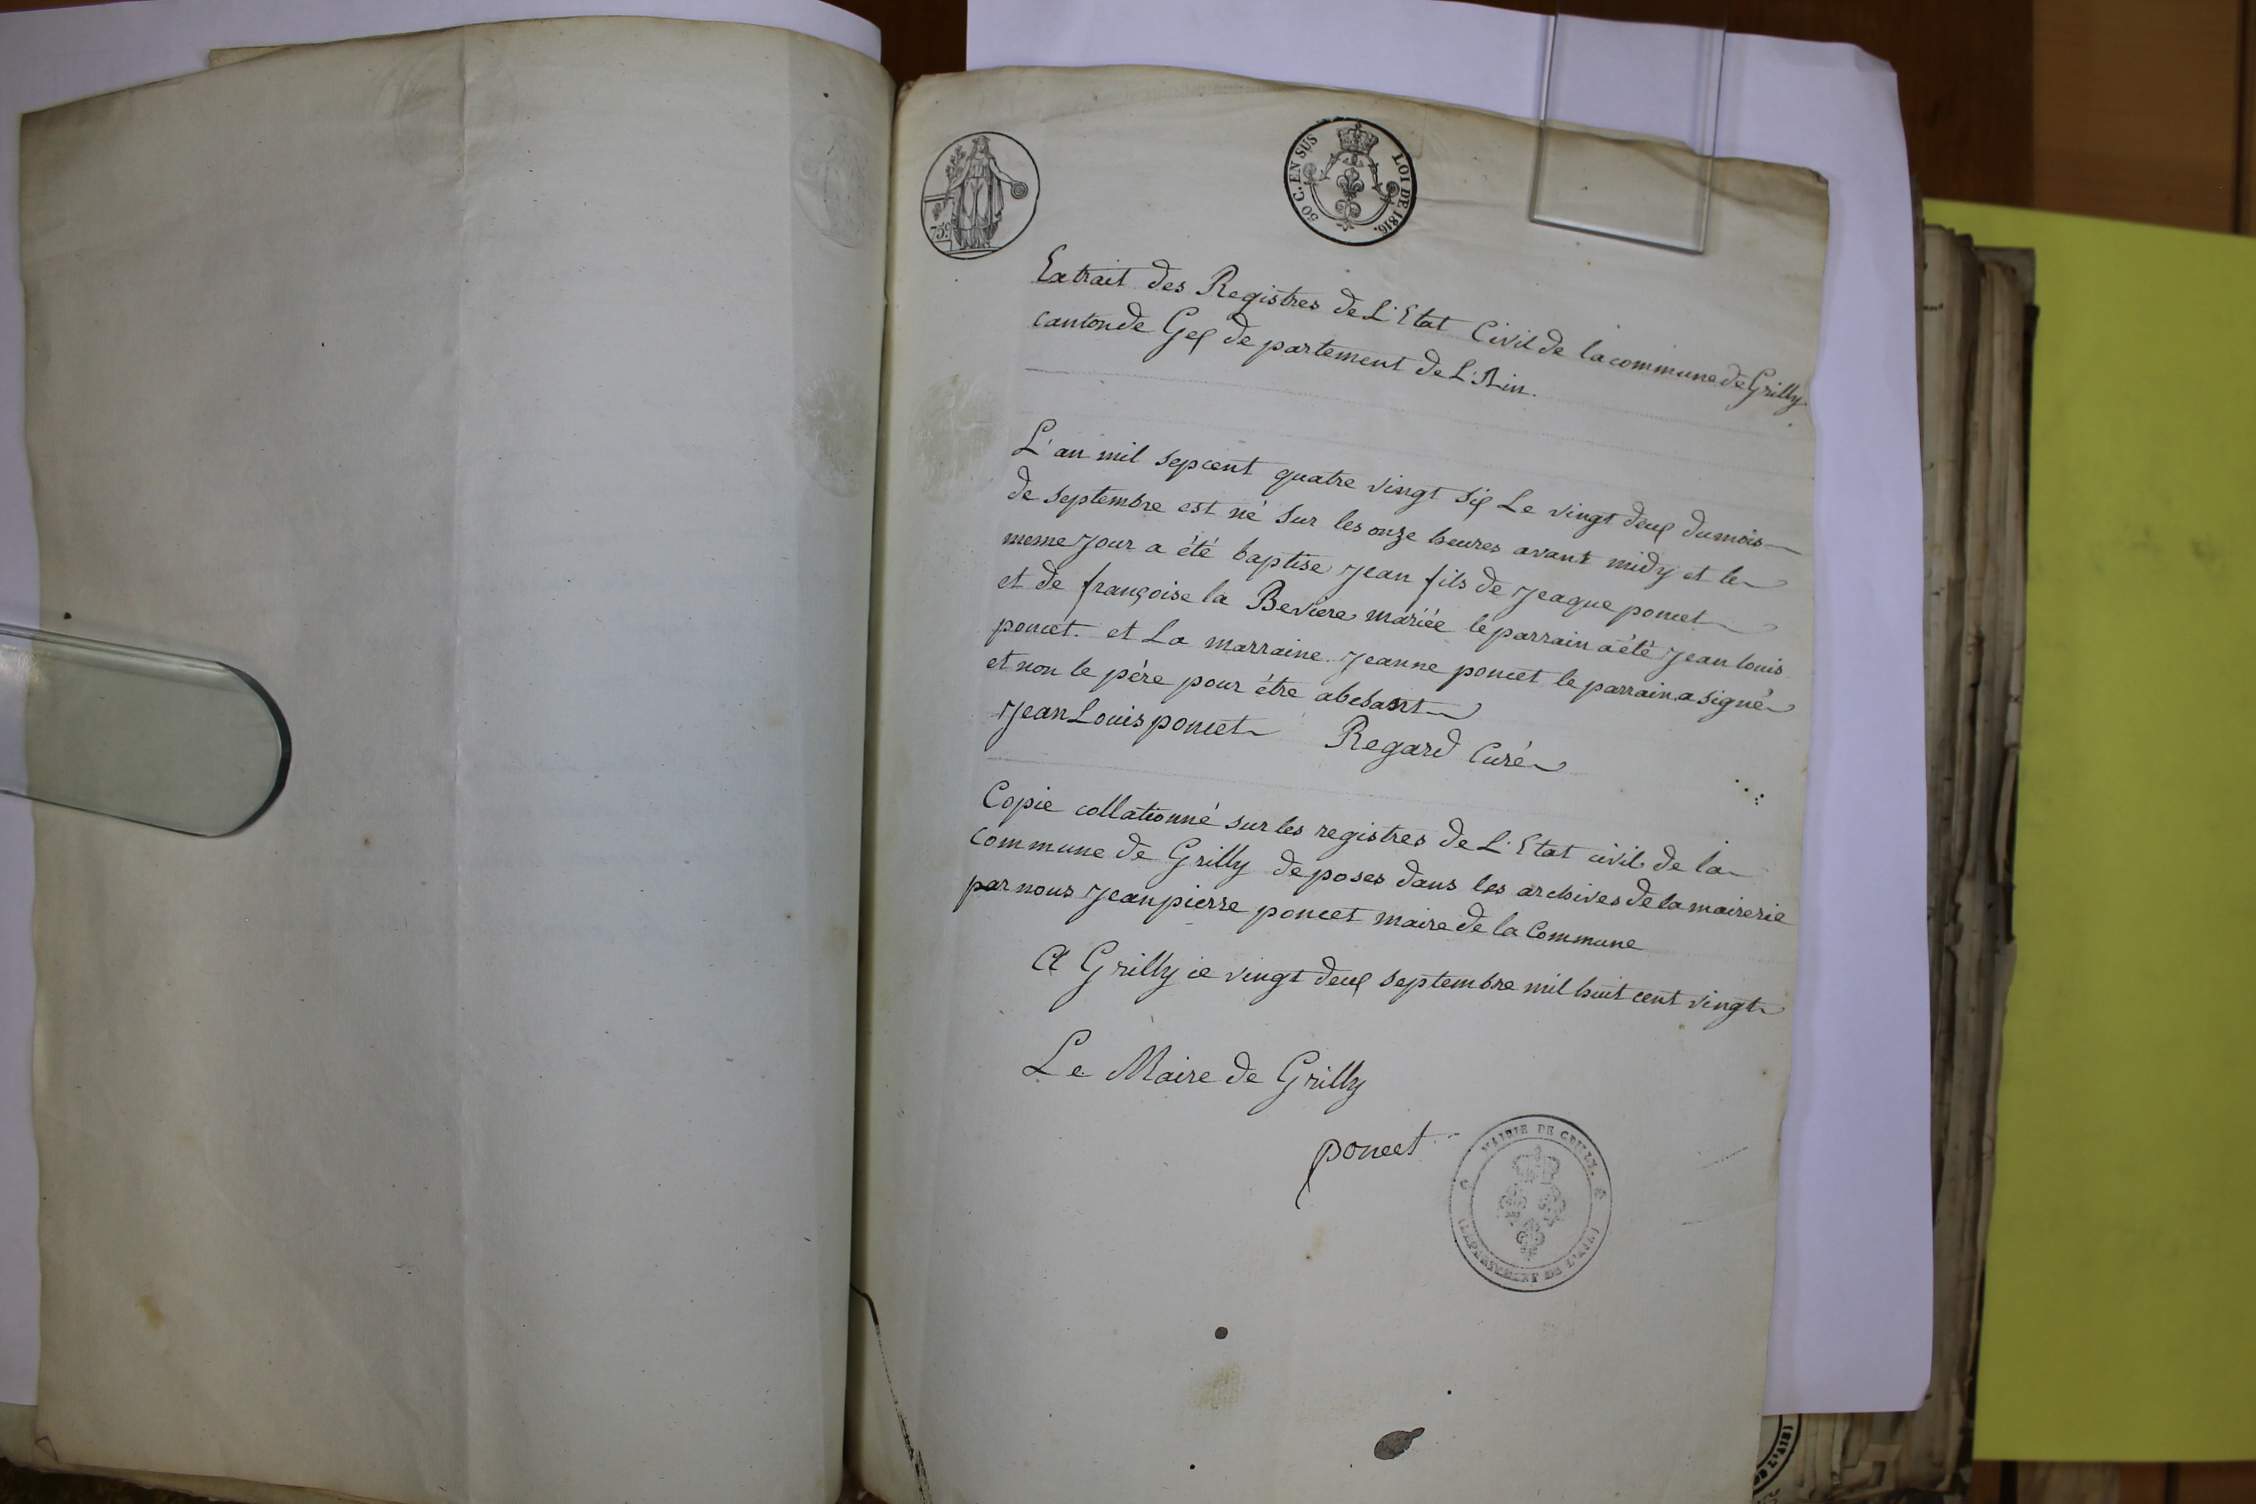 75c
50 C. EN SUS LOI DE 1816.
Extrait des Registres de L'Etat Civil de la commune de Grilly
canton de Gex departement de L'Ain.
L'an mil sepcent quatre vingt six Le vingt deux du mois
de septembre est né sur les onze heures avant midy et le
meme Jour a été baptise Jean fils de Jeaque poncet
et de françoise la Beviere mariée le parrain a été Jean louis
poncet. et La marraine Jeanne poncet le parrain a signé
et non le pére pour étre absant
Jean Louis poncet Regard Curé
Copie collationné sur les registres de L'Etat civil de la
commune de Grilly deposes dans les archives de la mairerie
par nous Jean pierre poncet maire de la Commune
A Grilly ce vingt deux septembre mil huit cent vingt
Le Maire de Grilly
poncet
MAIRIE DE GRILLY.
(DEPARTEMENT DE L'AIN)